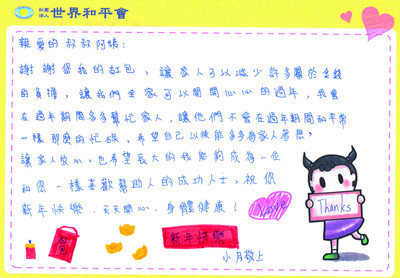 社團法人 世界和平會
親愛的叔叔阿姨：
謝謝您我的紅包，讓家人可以減少許多關於金錢
的負擔，讓我們全家可以開開心心的過年，我會
在過年期間多多幫忙家人，讓他們不會在過年期間和平常
一樣那麼的忙碌，希望自己以後能多多為家人著想，
讓家人放心，也希望長大的我能夠成為一位
和您一樣喜歡幫助人的成功人士，祝您
新年快樂，天天開心，身體健康！
Love
Thanks
紅包
新年快樂
小月敬上